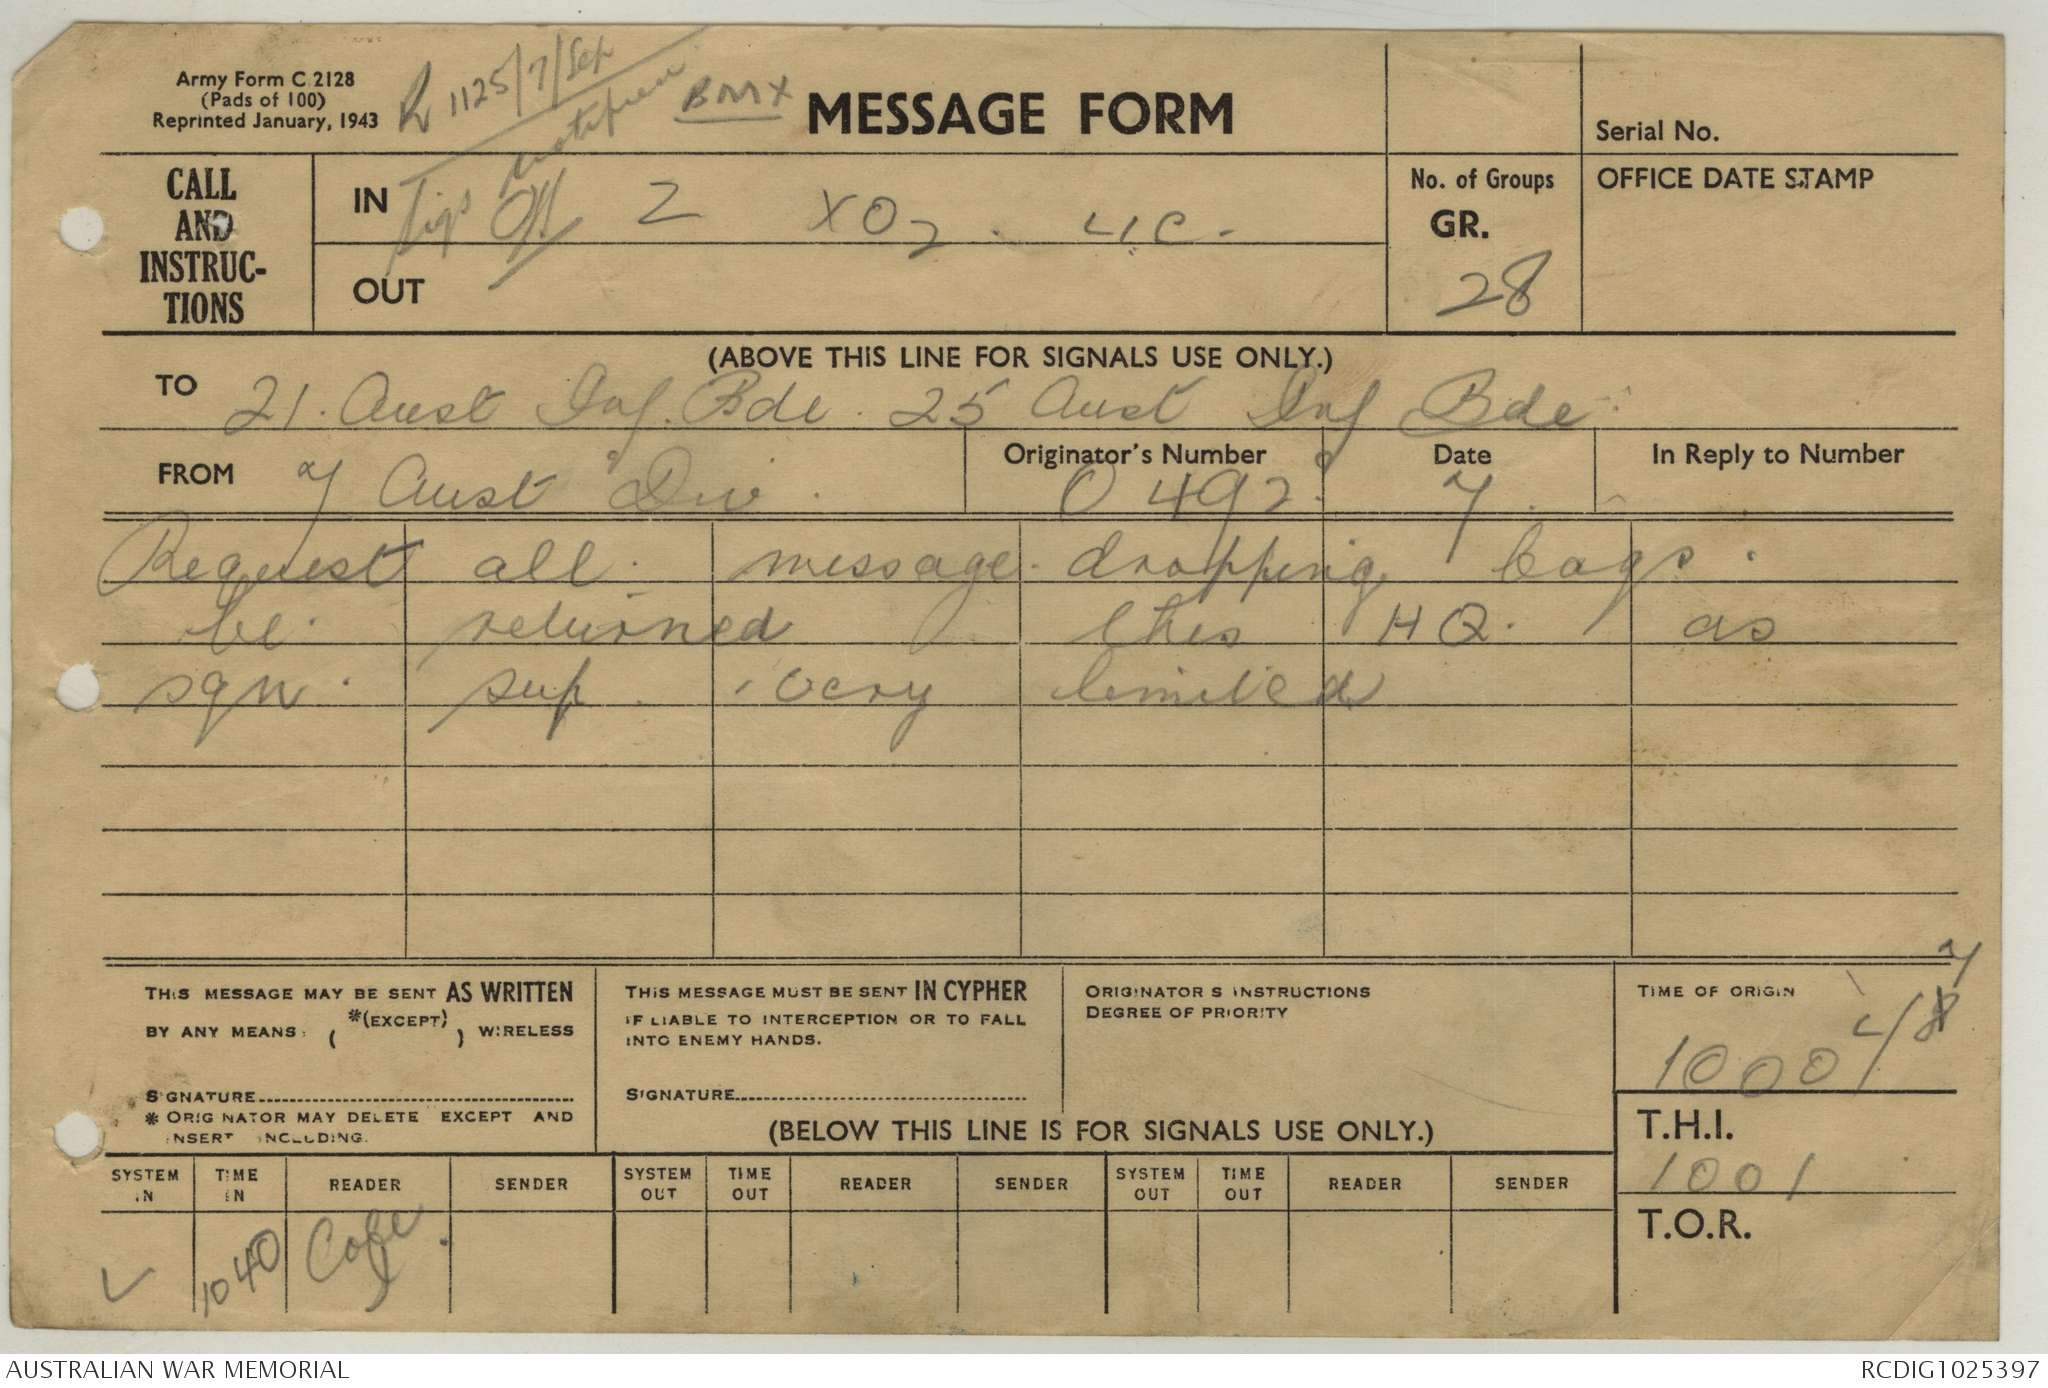 Army Form C 2128
(Pads of 100)
Reprinted January, 1943
R 1125/7/Sep
BMX
MESSAGE FORM
Serial No.
CALL
AND
INSTRUC-
TIONS
IN
Sigs Off
Z XO2. 4IC.
OUT
No. of Groups
GR.
28
OFFICE DATE STAMP
(ABOVE THIS LINE FOR SIGNALS USE ONLY.)
TO 21. Aust Inf. Bde. 25 Aust Inf Bde.
FROM 7 Aust Div.
Originator's Number
O 492
Date
7.
In Reply to Number
Request all. message. dropping bags.
be. returned this HQ. as
sgn. sup. very limited
THIS MESSAGE MAY BE SENT AS WRITTEN
BY ANY MEANS: ( *(EXCEPT) ) WIRELESS
SIGNATURE
* ORIGINATOR MAY DELETE EXCEPT AND
INSERT INCLUDING.
THIS MESSAGE MUST BE SENT IN CYPHER
IF LIABLE TO INTERCEPTION OR TO FALL
INTO ENEMY HANDS.
SIGNATURE
ORIGINATOR S INSTRUCTIONS
DEGREE OF PRIORITY
(BELOW THIS LINE IS FOR SIGNALS USE ONLY.)
TIME OF ORIGIN
1000
T.H.I.
1001
T.O.R.
SYSTEM IN
TIME IN
READER
SENDER
SYSTEM OUT
TIME OUT
READER
SENDER
SYSTEM OUT
TIME OUT
READER
SENDER
L 1040
AUSTRALIAN WAR MEMORIAL
RCDIG1025397